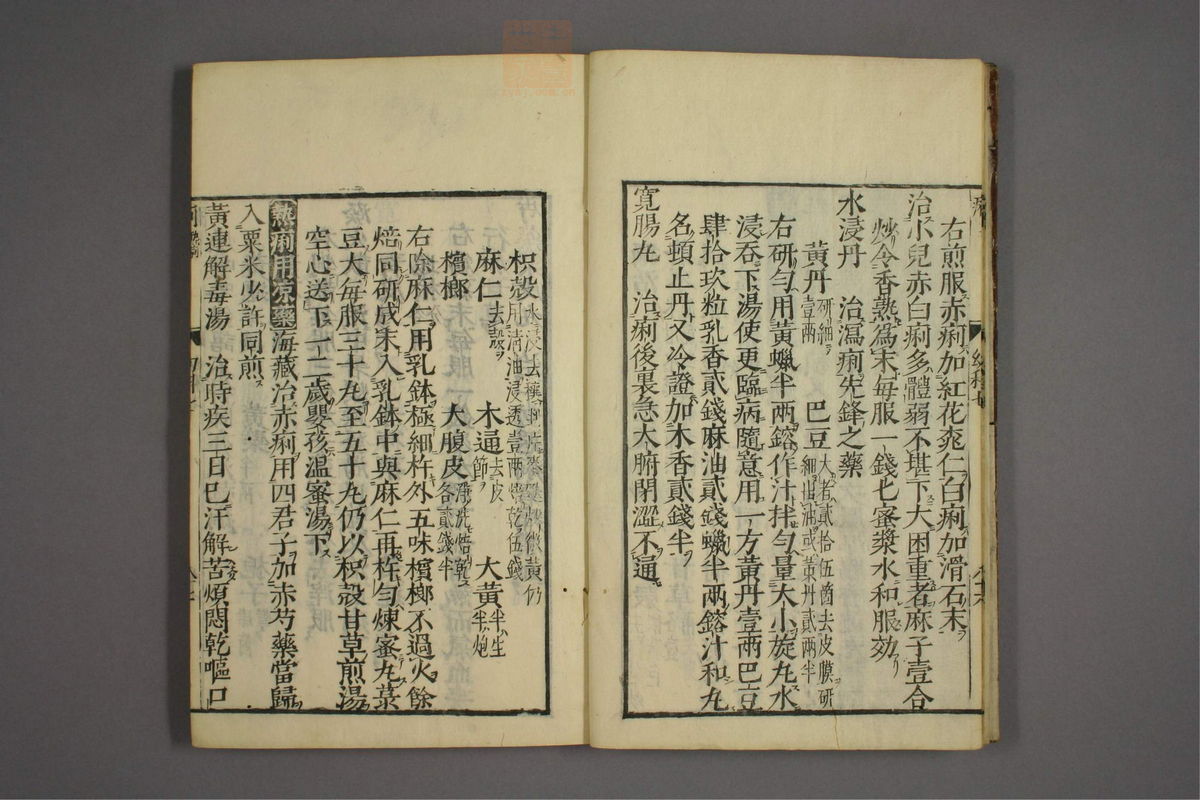 右煎服赤痢加紅花桃仁白痢加滑石末
治小兒赤白痢多體弱不堪下大困重者麻子壹合
炒令香熟為末每服一錢匕蜜漿水和服効
水浸丹 治瀉痢先鋒之藥
黃丹研細壹兩 巴豆大者貳拾伍箇去皮膜研細出油或黃丹貳兩半
右研勻用黃蠟半兩鎔作汁拌勻量大小旋丸水
浸吞下湯使更臨病隨意用一方黃丹壹兩巴豆
肆拾玖粒乳香貳錢麻油貳錢蠟半兩鎔汁和丸
名頓止丹又冷證加木香貳錢半
寬腸丸 治痢後裏急大腑閉澀不通
枳殼水浸去穰 麩炒微黃仍用清油浸透壹兩 乾伍錢
麻仁去殼 木通去皮節 大黃半生半炮
檳榔 大腹皮淨洗焙乾各貳錢半
右除麻仁用乳鉢極細杵外五味檳榔不過火餘
焙同研成末入乳鉢中與麻仁再杵勻煉蜜丸菉
豆大每服三十丸至五十丸仍以枳殼甘草煎湯
空心送下一二歲嬰孩溫蜜湯下
熱痢用涼藥海藏治赤痢用四君子加赤芍藥當歸
入粟米少許同煎
黃連解毒湯 治時疾三日已汗解苦煩悶乾嘔口